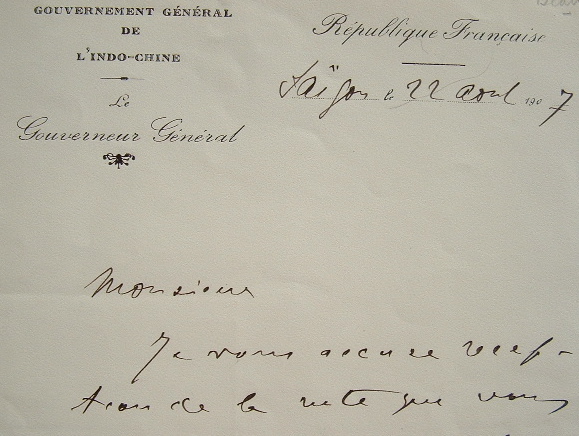 GOUVERNEMENT GÉNÉRAL
DE
L'INDO-CHINE
Le
Gouverneur Général
République Française
Saïgon le 22 aout 1907
Monsieur
Je vous accuse récep-
tion de la note que vous